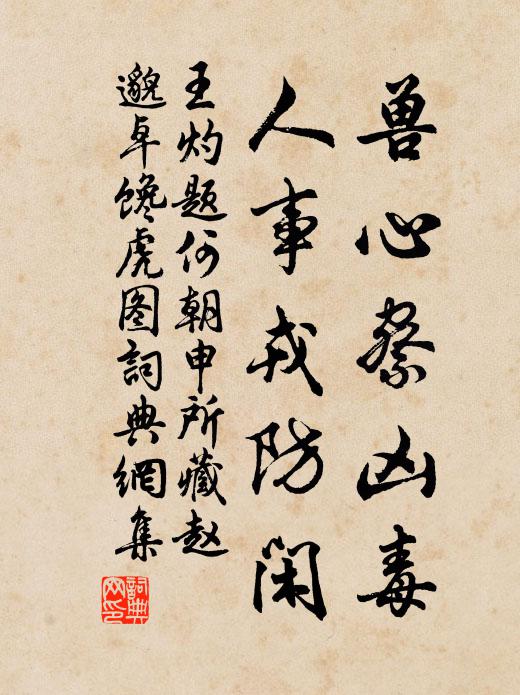 兽心凶毒
人事戒防闲
王灼题何朝申所藏赵
邈卓馋虎图詞典網集
詞典网印